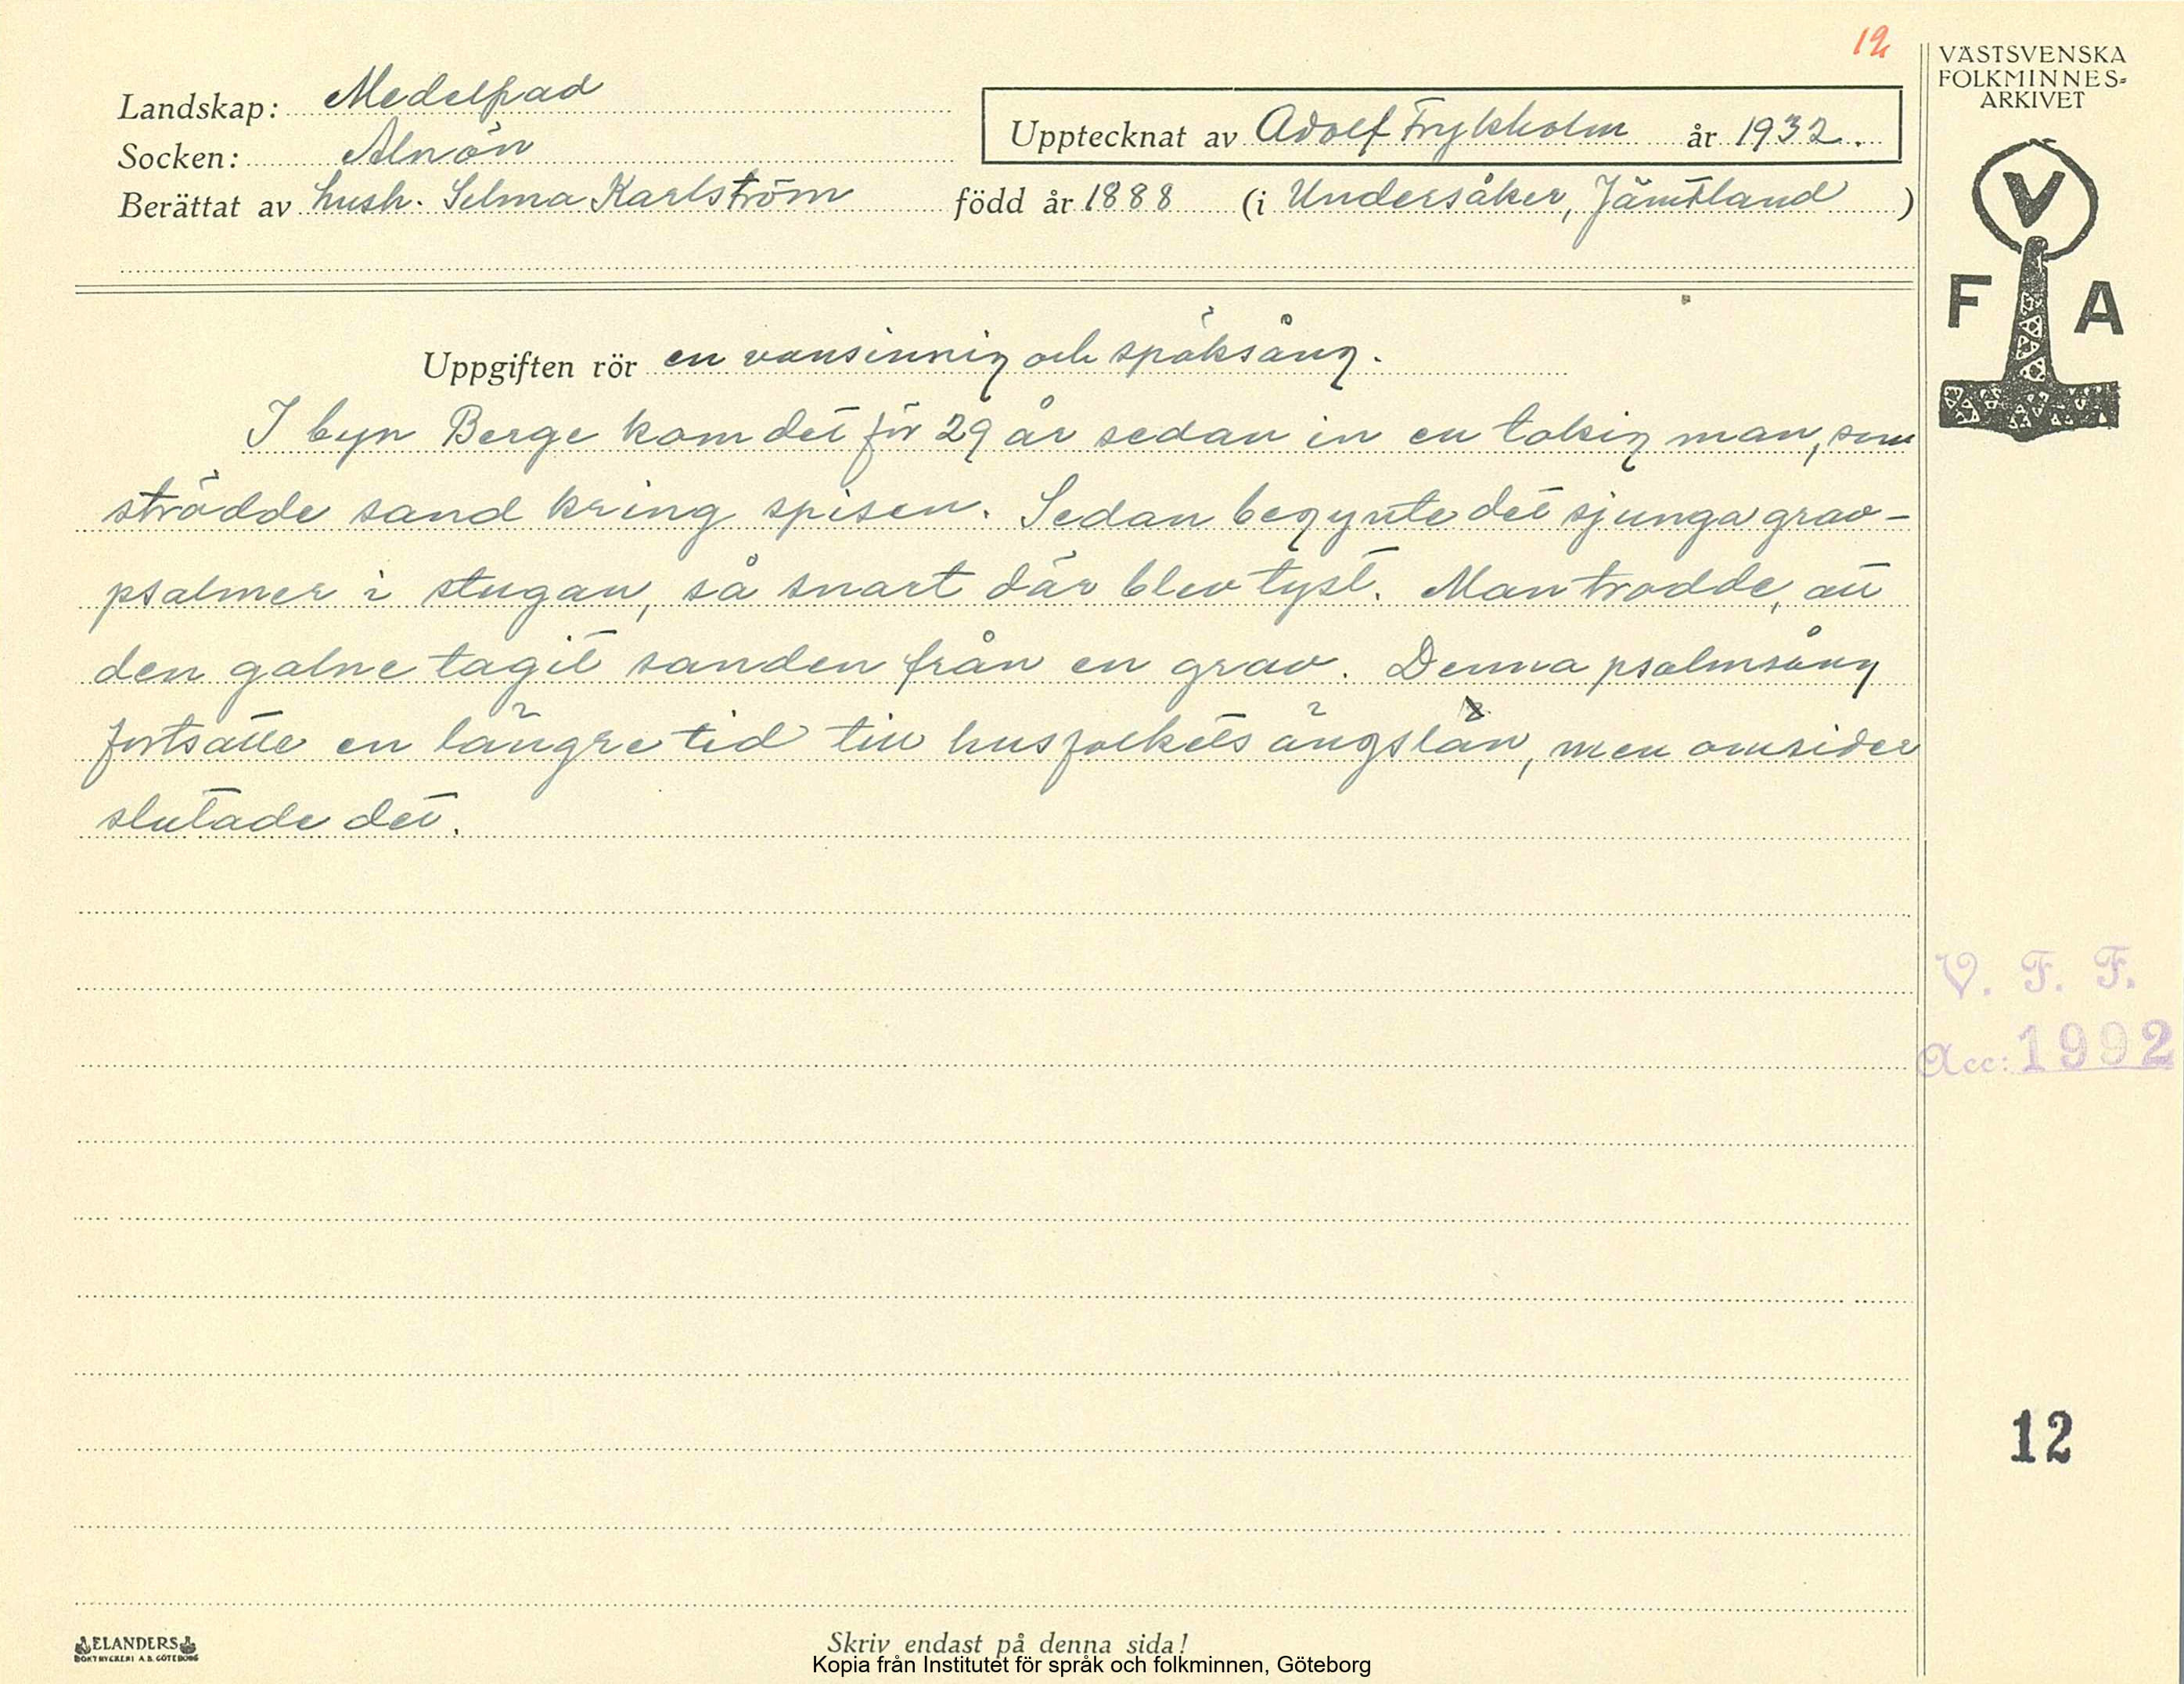 12
VÄSTSVENSKA
FOLKMINNES-
ARKIVET
Landskap: Medelpad
Upptecknat av Adolf Frykholm år 1932.
Socken: Alnön
Berättat av hush. Selma Karlström född år 1888 (i Undersåker, Jämtland)
V
F A
Uppgiften rör en vansinnig och spöksång.
I byn Berge kom det för 29 år sedan in en tokig man, som
strödde sand kring spisen. Sedan begynte det sjunga grav-
psalmer i stugan, så snart där blev tyst. Man trodde, att
den galne tagit sanden från en grav. Denna psalmsång
fortsatte en längre tid till husfolkets ängslan, men omsider
slutade det.
V. F. F.
Acc: 1992
12
ELANDERS
BOKTRYCKERI A.B. GÖTEBORG
Skriv endast på denna sida!
Kopia från Institutet för språk och folkminnen, Göteborg